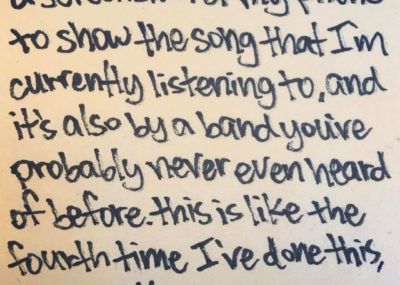 a screenshot of my phone
to show the song that I'm
currently listening to, and
it's also by a band you've
probably never even heard
of before. this is like the
fourth time I've done this,